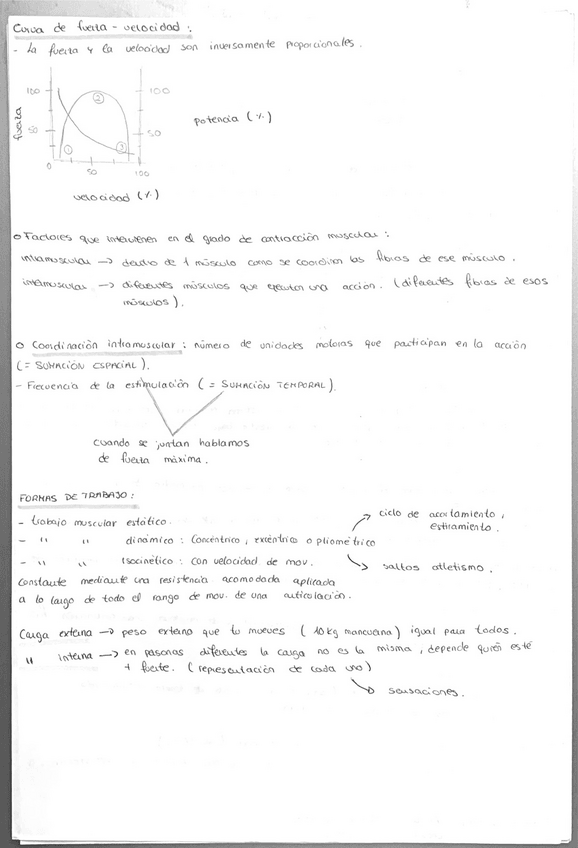 Curva de fuerza - velocidad :
- La fuerza y la velocidad son inversamente proporcionales.
100
50
0
fuerza
1
2
3
50
100
100
50
potencia (%)
velocidad (%)
o Factores que intervienen en el grado de contracción muscular :
intramuscular -> dentro de 1 músculo como se coordinan las fibras de ese músculo.
intermuscular -> diferentes músculos que ejecutan una acción. (diferentes fibras de esos
músculos).
o Coordinación intramuscular : número de unidades motoras que participan en la acción
(= SUMACIÓN ESPACIAL).
- Frecuencia de la estimulación (= SUMACIÓN TEMPORAL).
cuando se juntan hablamos
de fuerza máxima.
FORMAS DE TRABAJO :
- trabajo muscular estático.
- " " dinámico : Concéntrico, excéntrico o pliométrico
-> ciclo de acortamiento,
estiramiento.
-> saltos atletismo.
- " " Isocinético : con velocidad de mov.
constante mediante una resistencia acomodada aplicada
a lo largo de todo el rango de mov. de una articulación.
Carga externa -> peso externo que tu mueves (10 kg mancuerna) igual para todos.
" interna -> en personas diferentes la carga no es la misma, depende quién esté
+ fuerte. (representación de cada uno)
-> sensaciones.